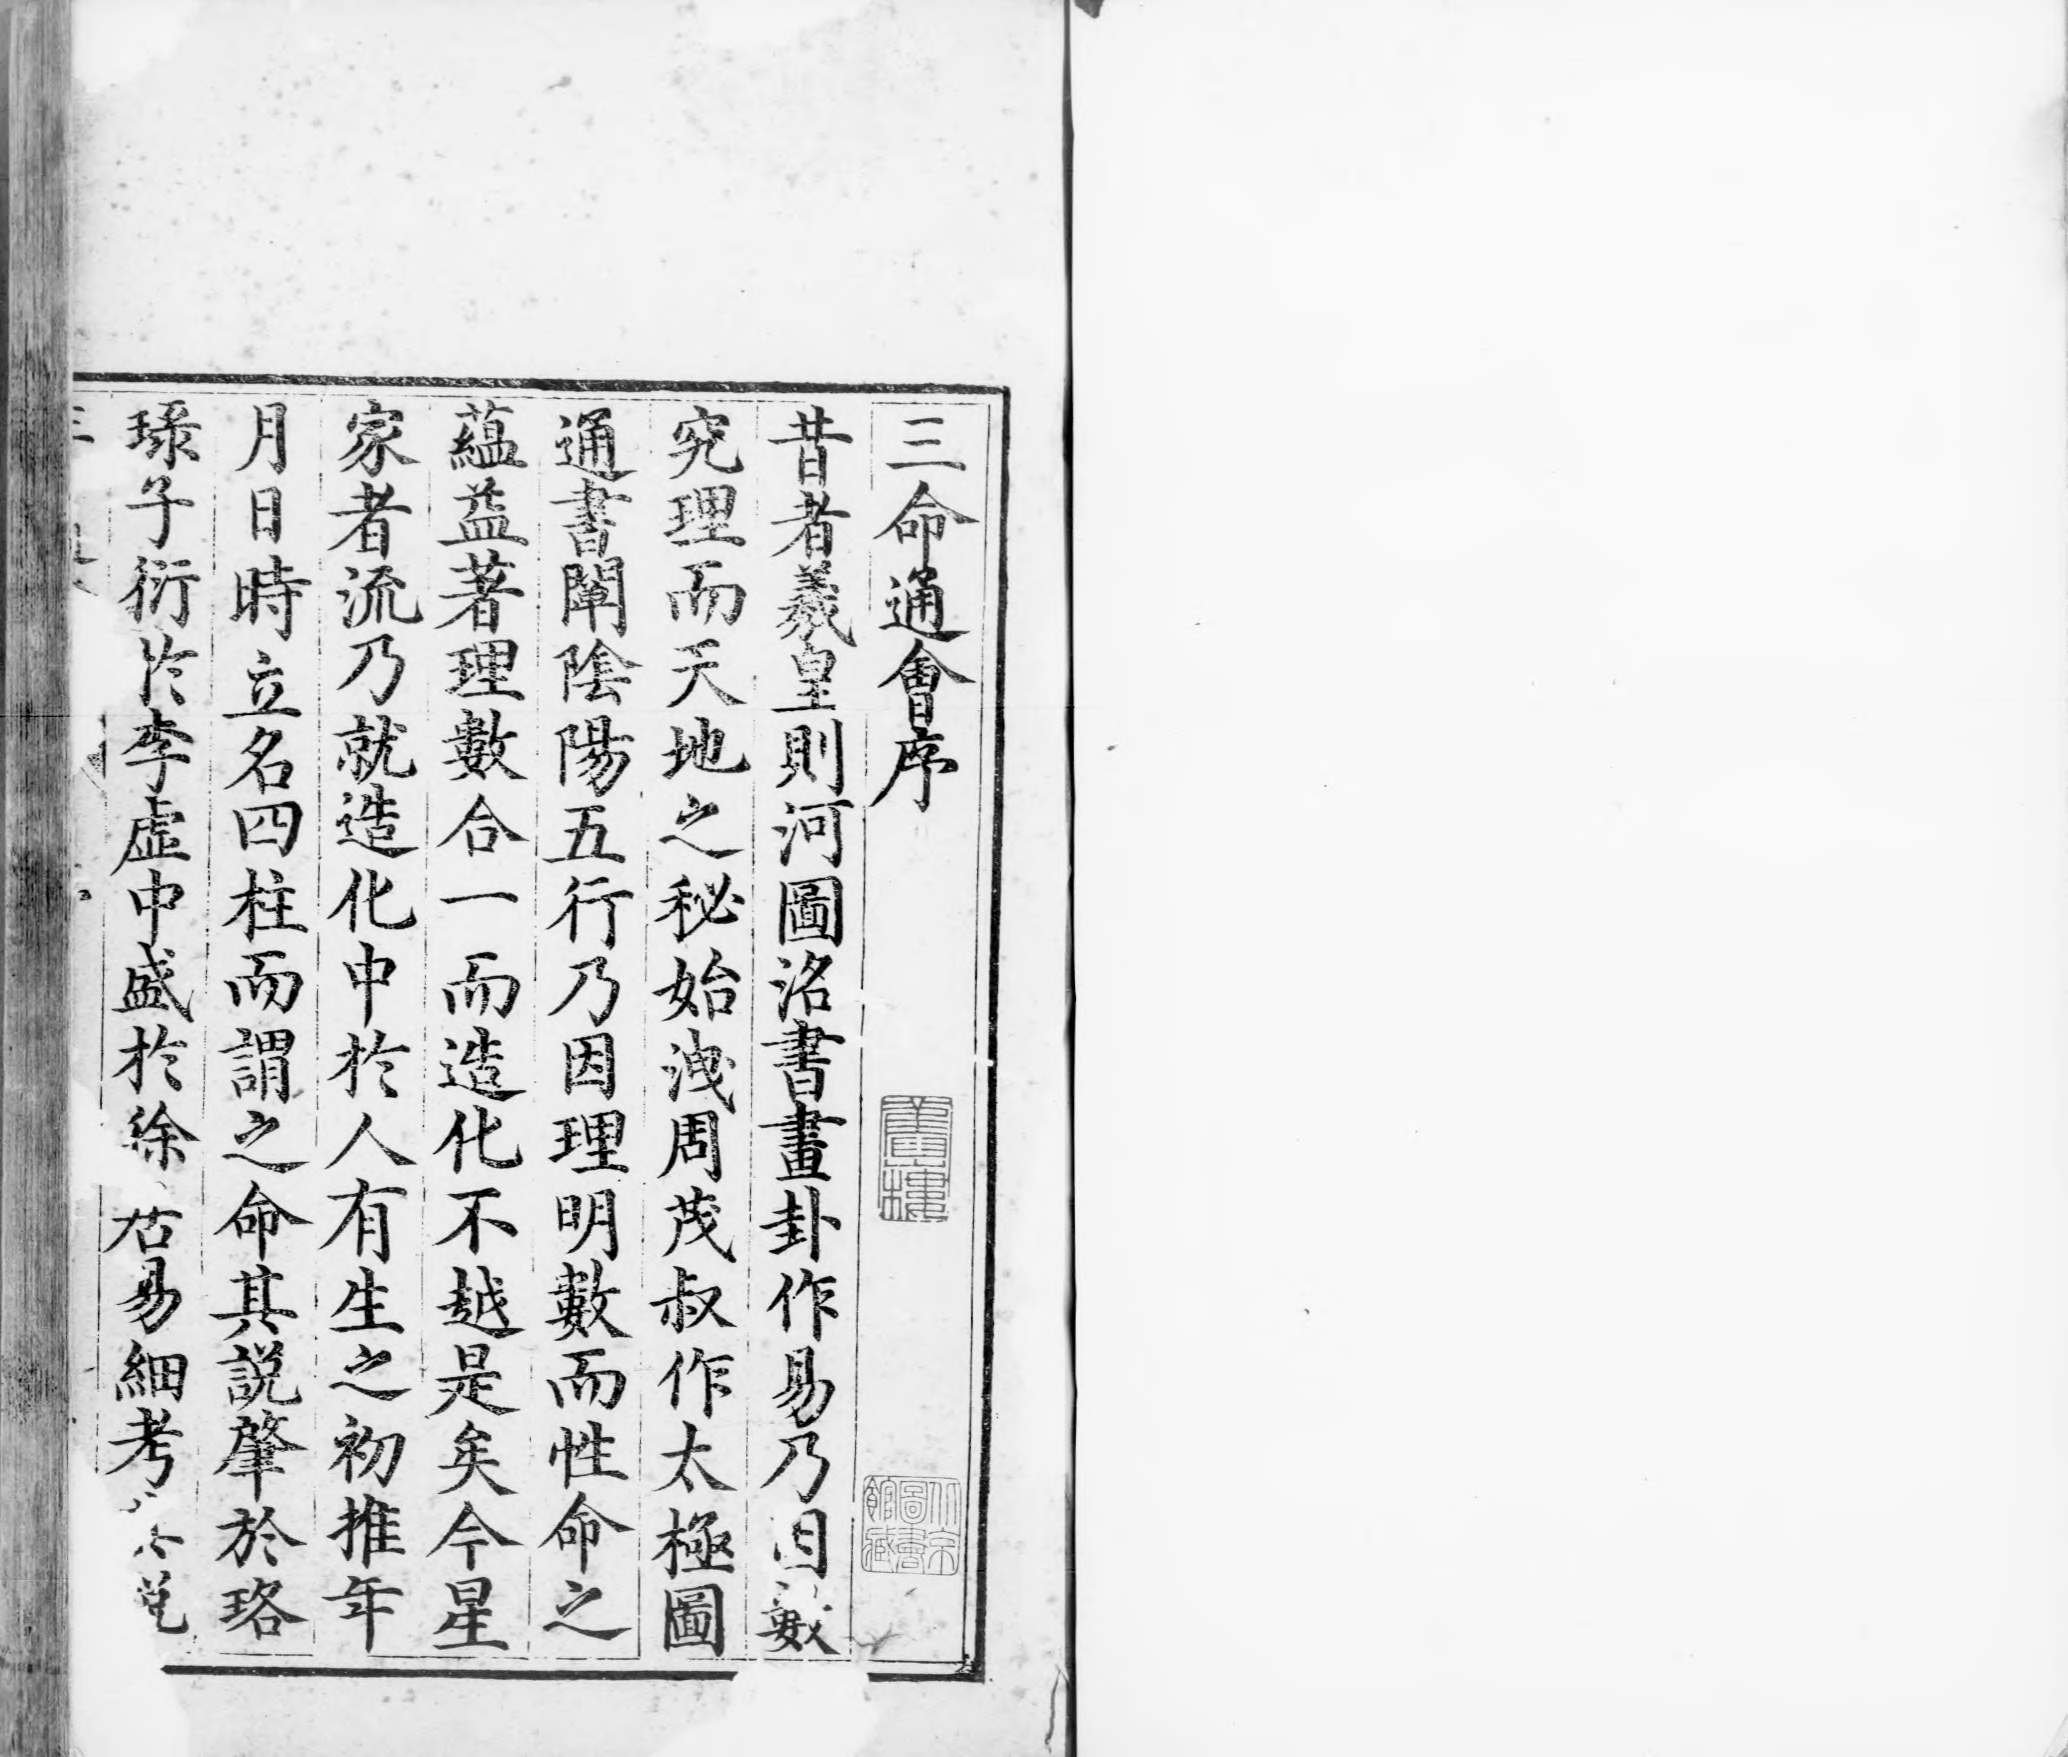 三命通會序
昔者羲皇則河圖洛書畫卦作易乃因數
究理而天地之秘始洩周茂叔作太極圖
通書闡陰陽五行乃因理明數而性命之
蘊益著理數合一而造化不越是矣今星
家者流乃就造化中於人有生之初推年
月日時立名四柱而謂之命其説肇於珞
琭子衍於李虛中盛於徐居易細考
北京圖書館藏